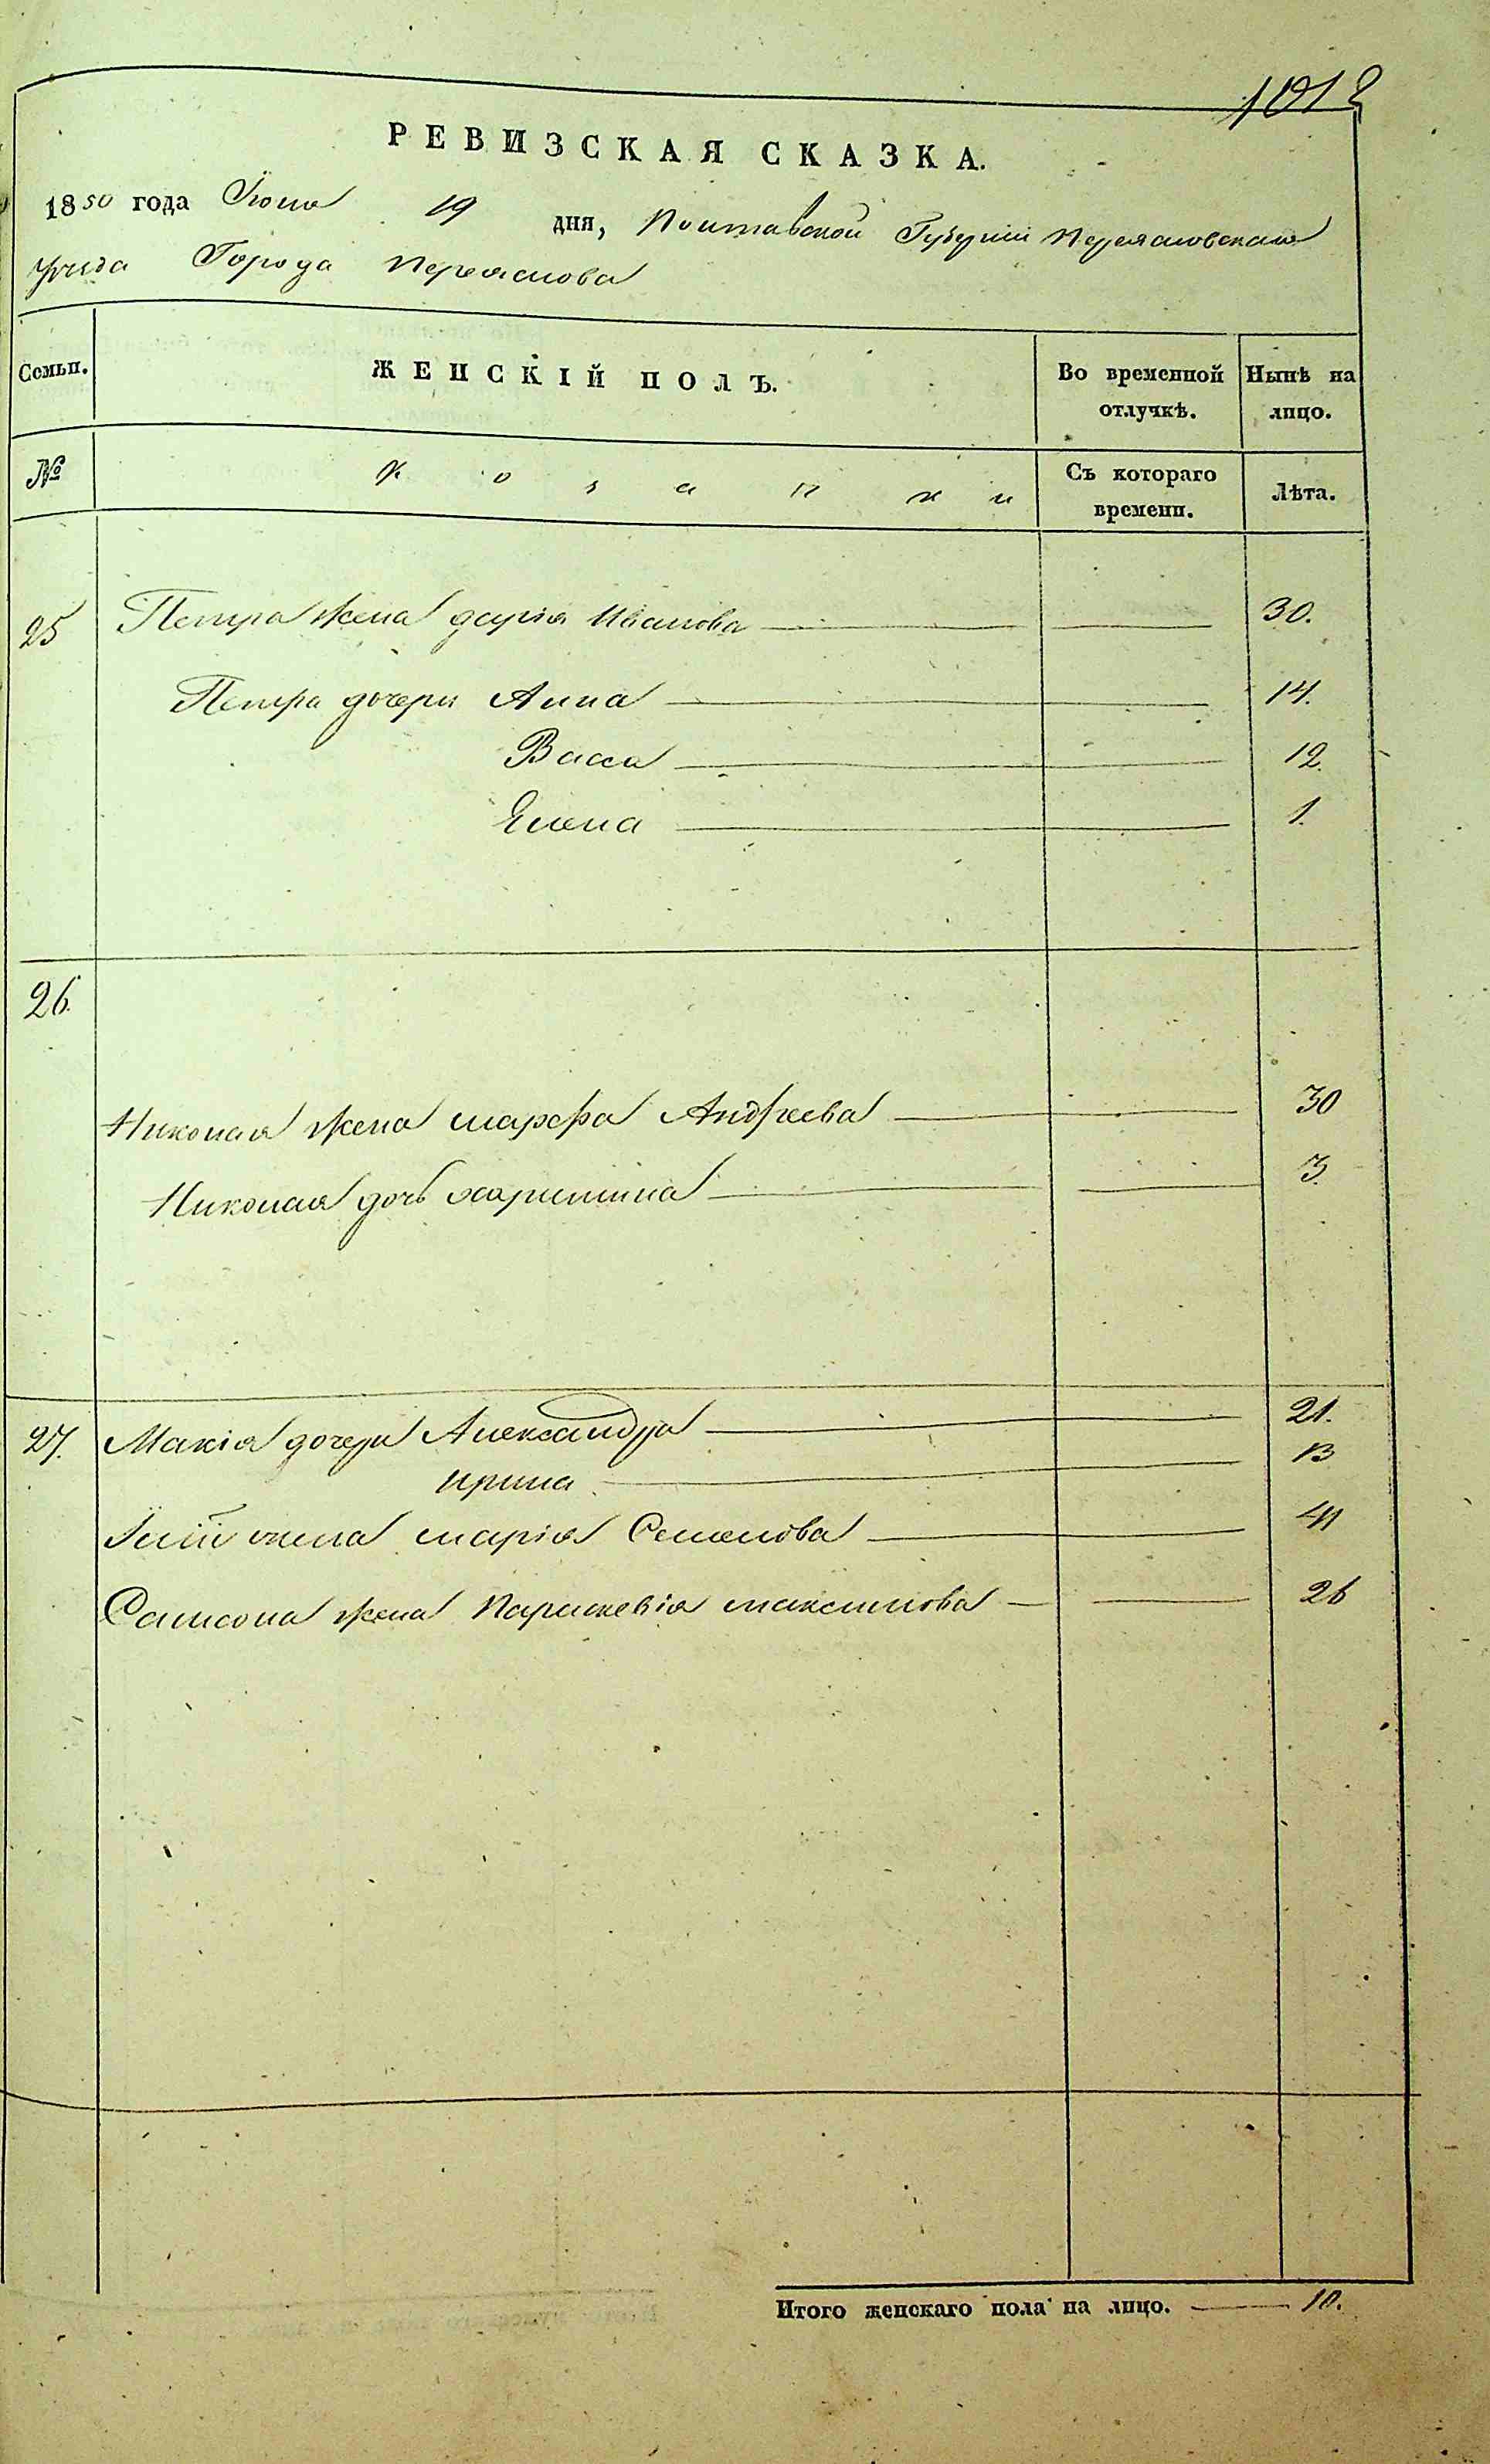 1012
РЕВИЗСКАЯ СКАЗКА.
1850 года Іюня 19 дня, Полтавской Губерніи Переяславскаго
уезда Города Переяслова
Семьи. ЖЕНСКІЙ ПОЛЪ. Во временной отлучкѣ. Нынѣ на лицо.
№ Козачки Съ котораго времени. Лѣта.
25 Петра жена дарія Иванова 30.
Петра дочери Анна 14.
Васса 12.
Елена 1.
26.
Николая жена марфа Андреева 30
Николая дочь харитина 3.
27. Макія дочери Александра 21.
ирина 13
жена марія Семенова 41
Самсона жена Параскевія максимова 26
Итого женскаго пола на лицо. 10.